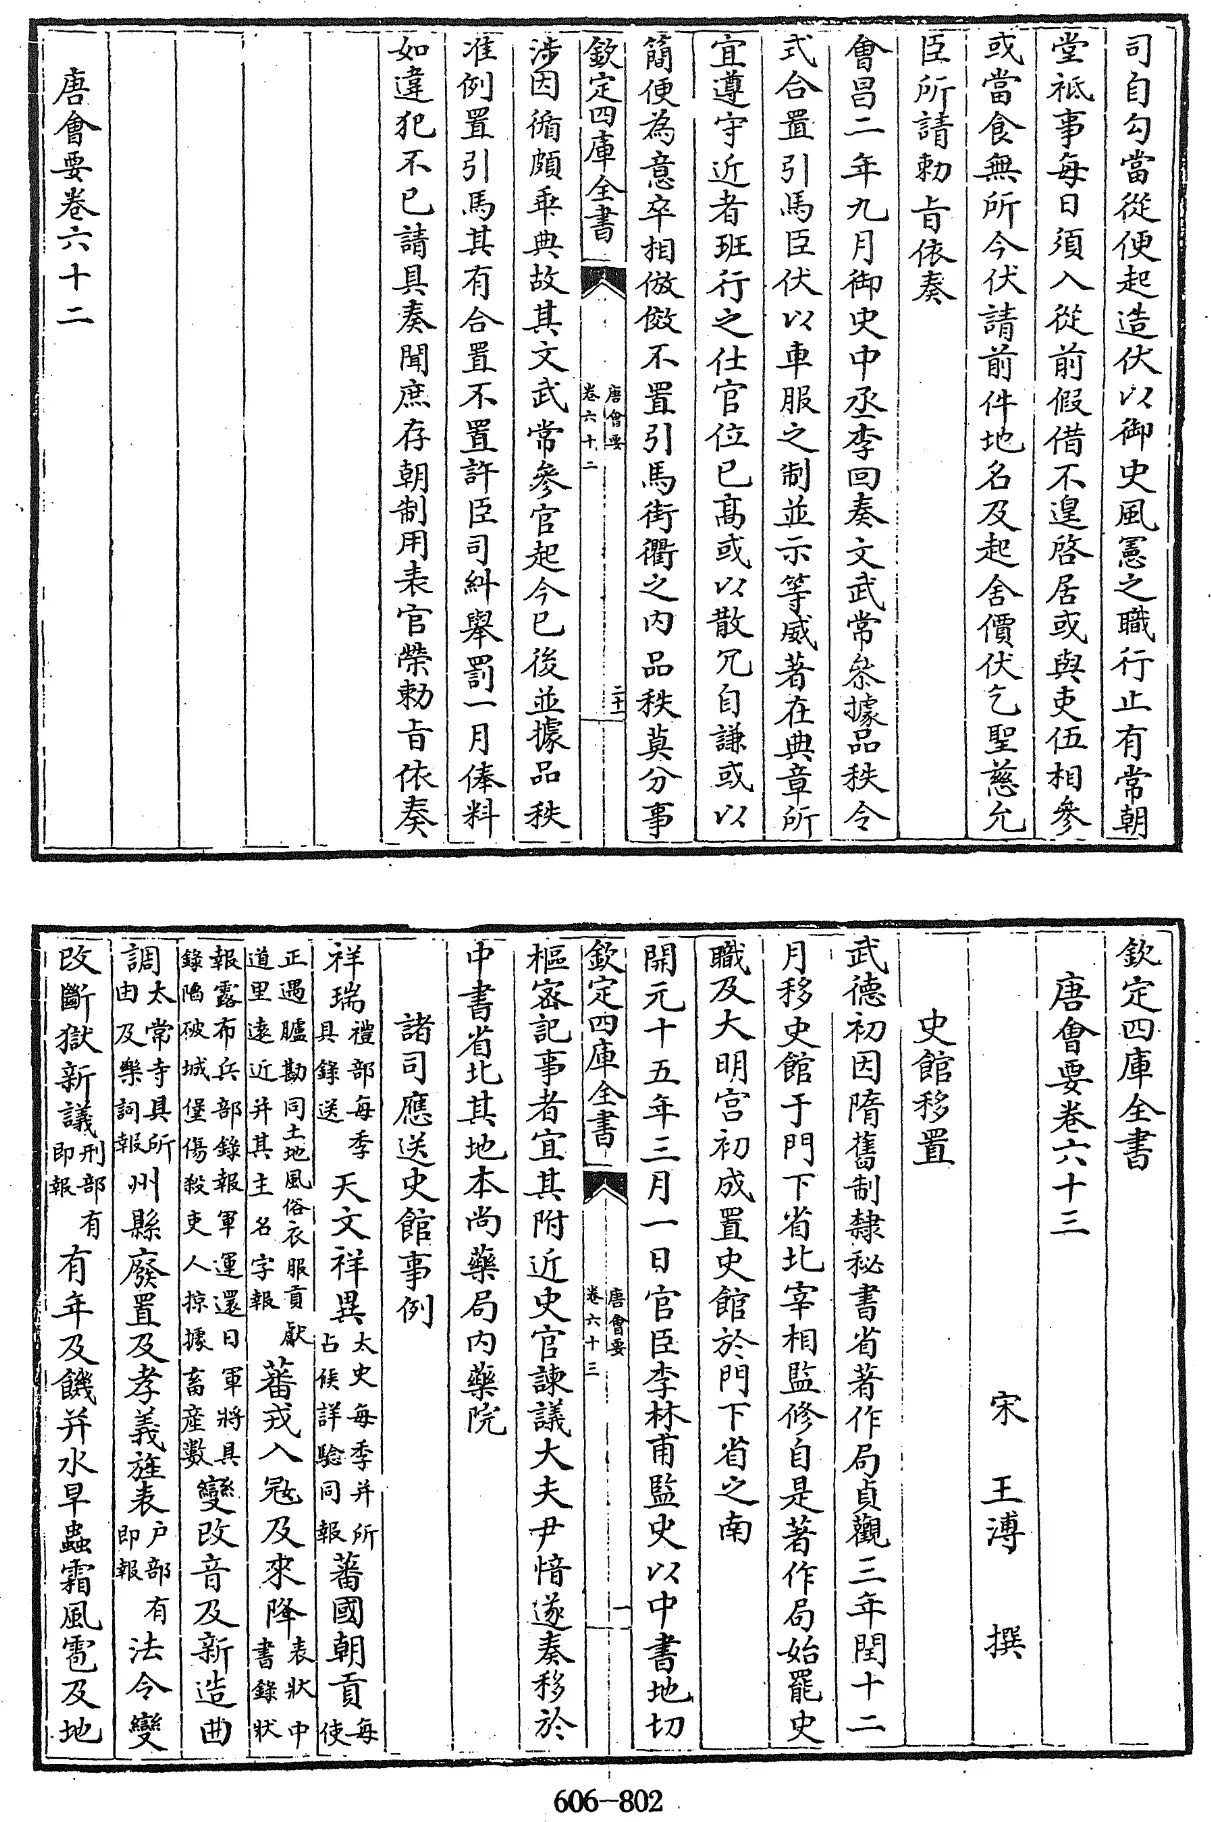 司自勾當從便起造伏以御史風憲之職行止有常朝
堂祗事每日須入從前假借不遑啓居或與吏伍相參
或當食無所今伏請前件地名及起舍價伏乞聖慈允
臣所請勅旨依奏
會昌二年九月御史中丞李回奏文武常參據品秩令
式合置引馬臣伏以車服之制並示等威著在典章所
宜遵守近者班行之仕官位已髙或以散冗自謙或以
簡便為意卒相倣傚不置引馬街衢之内品秩莫分事
欽定四庫全書
唐會要
卷六十二
二十一
涉因循頗乖典故其文武常參官起今已後並據品秩
准例置引馬其有合置不置許臣司糾舉罰一月俸料
如違犯不已請具奏聞庶存朝制用表官榮勅旨依奏
唐會要卷六十二
欽定四庫全書
唐會要卷六十三
宋 王溥 撰
史館移置
武德初因隋舊制隸秘書省著作局貞觀三年閏十二
月移史館于門下省北宰相監修自是著作局始罷史
職及大明宮初成置史館於門下省之南
開元十五年三月一日官臣李林甫監史以中書地切
欽定四庫全書
唐會要
卷六十三
一
樞宻記事者宜其附近史官諫議大夫尹愔遂奏移於
中書省北其地本尚藥局内藥院
諸司應送史館事例
祥瑞禮部每季具錄送 天文祥異太史每季并所占候詳驗同報 蕃國朝貢每使
正遇臚勘同土地風俗衣服貢獻道里遠近并其主名字報 蕃戎入冦及來降表狀中書錄狀
報露布兵部錄報軍運還日軍將具錄陷破城堡傷殺吏人掠據畜產數 變改音及新造曲
調太常寺具所由及樂詞報 州縣廢置及孝義旌表户部有即報 法令變
改斷獄新議刑部有即報 有年及饑并水旱蟲霜風雹及地
606-802